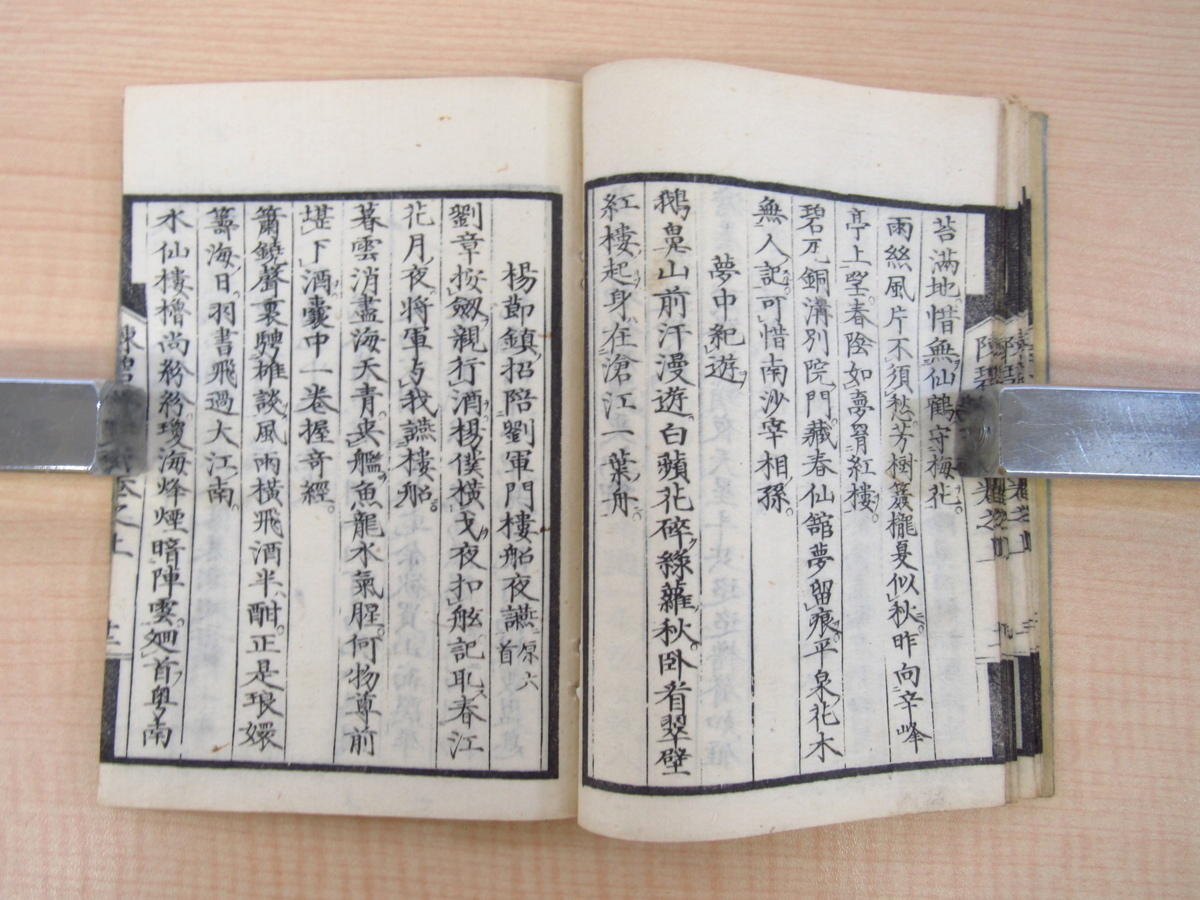 苔滿地惜無仙鶴守梅花
雨絲風片不須愁芳樹簇櫳夏似秋昨向辛峰
亭上望春陰如夢罥紅樓
碧瓦銅溝別院門藏春仙館夢留痕平泉花木
無人記可惜南沙宰相孫
夢中紀遊
鵝鼻山前汗漫遊白蘋花碎綠蘿秋臥看翠壁
紅樓起身在滄江一葉舟
楊節鎮招陪劉軍門樓船夜讌原六首
劉章按劔親行酒楊僕橫戈夜扣舷記取春江
花月夜將軍与我讌樓船
暮雲消盡海天青艦魚龍水氣腥何物尊前
堪下酒囊中一卷握奇經
簫鐃聲裏騁雄談風雨橫飛酒半酣正是琅嬛
籌海日羽書飛過大江南
水仙樓櫓尚紛紛瓊海烽煙暗陣雲廻首粤南
陳碧
卷之上